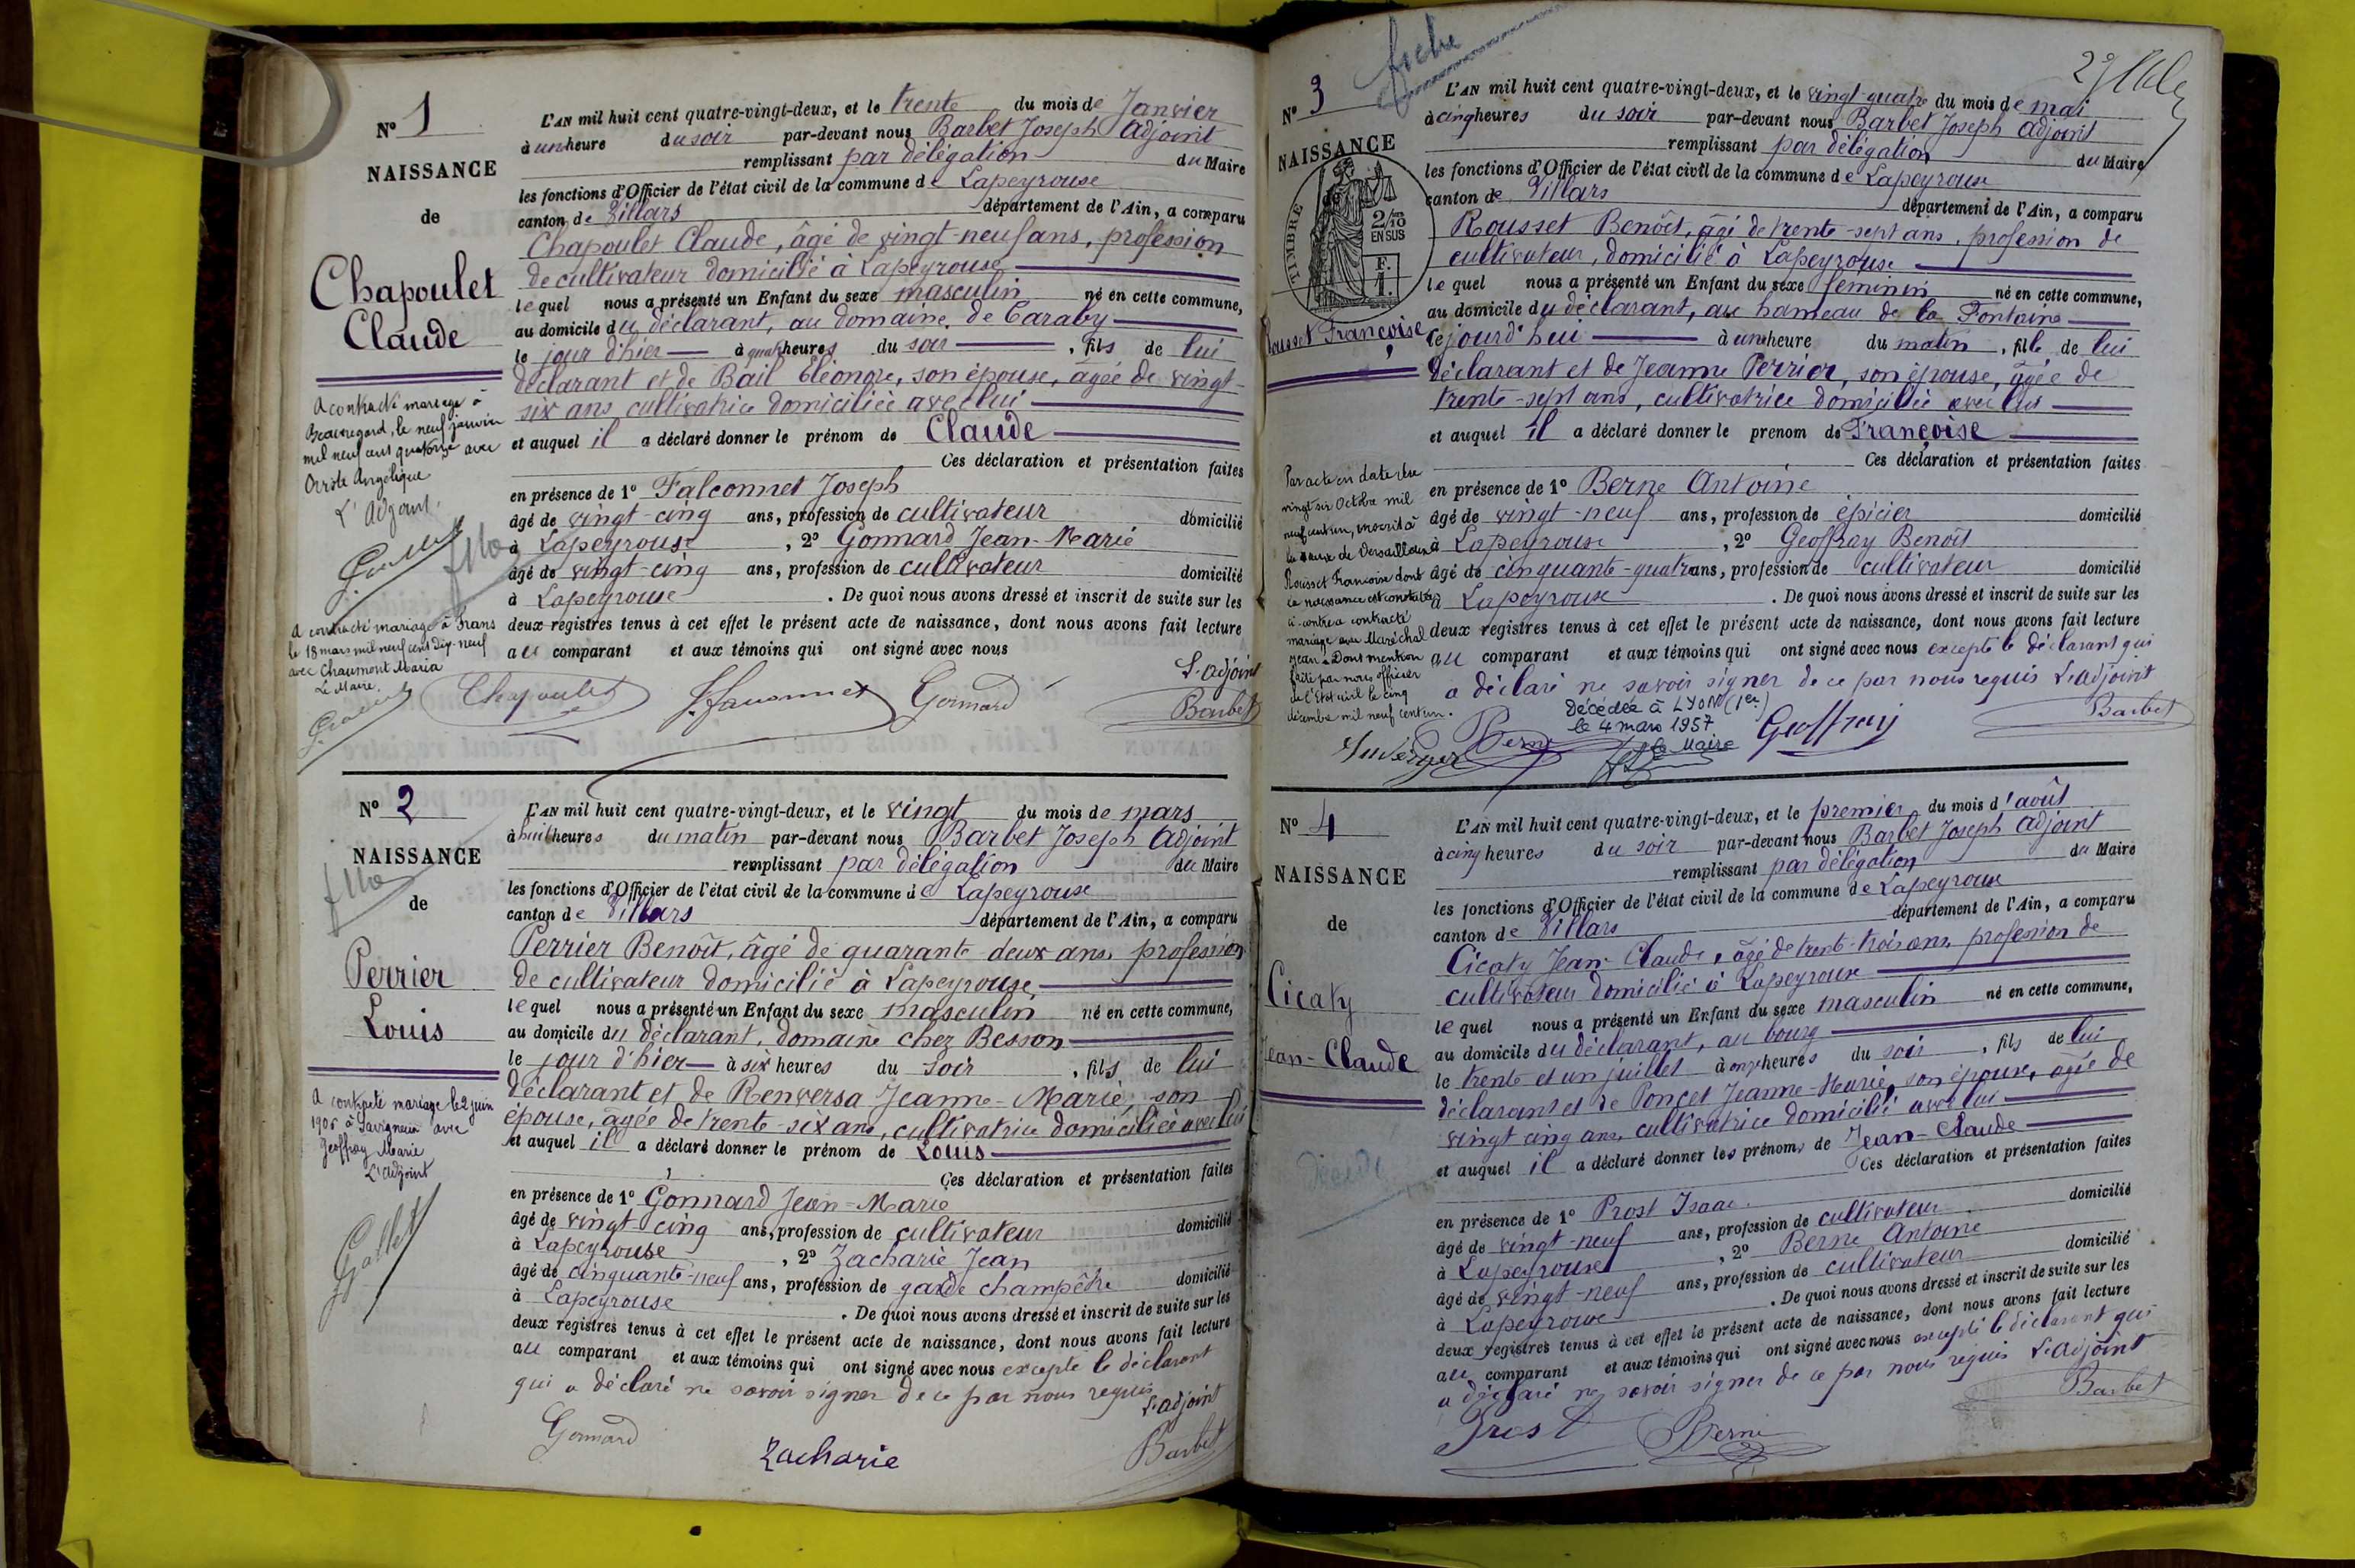 N° 1
NAISSANCE
de
Chapoulet
Claude
A contracté mariage à
Beauregard, le neuf janvier
mil neuf cent quatorze avec
Angélique
L'Adjoint,
A contracté mariage à Frans
le 18 mars mil neuf cent dix-neuf
avec Chaumont Maria
Le Maire,
L'AN mil huit cent quatre-vingt-deux, et le trente du mois de Janvier
à une heure du soir par-devant nous Barbet Joseph Adjoint
remplissant par délégation du Maire
les fonctions d'Officier de l'état civil de la commune de Lapeyrouse
canton de Villars département de l'Ain, a comparu
Chapoulet Claude, âgé de vingt-neuf ans, profession
de cultivateur domicilié à Lapeyrouse
lequel nous a présenté un Enfant du sexe masculin né en cette commune,
au domicile du déclarant, au domaine de Caraby
le jour d'hier à quatre heures du soir, fils de lui
déclarant et de Bail Eléonore, son épouse, agée de vingt-
six ans cultivatrice domiciliée avec lui
et auquel il a déclaré donner le prénom de Claude
Ces déclaration et présentation faites
en présence de 1° Falconnet Joseph
âgé de vingt-cinq ans, profession de cultivateur domicilié
à Lapeyrouse, 2° Gonnard Jean-Marie
âgé de vingt-cinq ans, profession de cultivateur domicilié
à Lapeyrouse. De quoi nous avons dressé et inscrit de suite sur les
deux registres tenus à cet effet le présent acte de naissance, dont nous avons fait lecture
au comparant et aux témoins qui ont signé avec nous
L'adjoint
Chapoulet Gonnard Barbet
N° 2
NAISSANCE
de
Perrier
Louis
A contracté mariage le 2 juin
1905 à Savigneux avec
Geoffray Marie
L'Adjoint
L'AN mil huit cent quatre-vingt-deux, et le vingt du mois de mars
à huit heures du matin par-devant nous Barbet Joseph Adjoint
remplissant par délégation du Maire
les fonctions d'Officier de l'état civil de la commune de Lapeyrouse
canton de Villars département de l'Ain, a comparu
Perrier Benoît, âgé de quarante deux ans, profession
de cultivateur domicilié à Lapeyrouse,
lequel nous a présenté un Enfant du sexe masculin né en cette commune,
au domicile du déclarant, domaine chez Besson
le jour d'hier à six heures du Soir, fils de lui
déclarant et de Renversa Jeanne-Marie, son
épouse, âgée de trente-six ans, cultivatrice domiciliée avec lui
et auquel il a déclaré donner le prénom de Louis
Ces déclaration et présentation faites
en présence de 1° Gonnard Jean-Marie
âgé de vingt-cinq ans, profession de cultivateur domicilié
à Lapeyrouse, 2° Zacharie Jean
âgé de cinquante-neuf ans, profession de garde champêtre domicilié
à Lapeyrouse. De quoi nous avons dressé et inscrit de suite sur les
deux registres tenus à cet effet le présent acte de naissance, dont nous avons fait lecture
au comparant et aux témoins qui ont signé avec nous excepté le déclarant
qui a déclaré ne savoir signer de ce par nous requis
L'adjoint
Gonnard Zacharie Barbet
fiche
N° 3
NAISSANCE
de
TIMBRE
2/10
EN SUS
F.
1.
Rousset Françoise
Par acte en date du
vingt six Octobre mil
neuf cent un, inscrit à
la mairie de Versailleux
Rousset Françoise dont
la naissance est constatée
ci-contre a contracté
mariage avec Maréchal
Jean. Dont mention
faite par nous officier
de l'Etat civil le cinq
décembre mil neuf cent un.
L'AN mil huit cent quatre-vingt-deux, et le vingt-quatre du mois de mai
à cinq heures du soir par-devant nous Barbet Joseph adjoint
remplissant par délégation du Maire
les fonctions d'Officier de l'état civil de la commune de Lapeyrouse
canton de Villars département de l'Ain, a comparu
Rousset Benoît, âgé de trente-sept ans, profession de
cultivateur, domicilié à Lapeyrouse
lequel nous a présenté un Enfant du sexe féminin né en cette commune,
au domicile du déclarant, au hameau de la Fontaine
cejourd'hui à une heure du matin, fille de lui
déclarant et de Jeanne Perrier, son épouse, âgée de
trente-sept ans, cultivatrice domiciliée avec lui
et auquel il a déclaré donner le prenom de Françoise
Ces déclaration et présentation faites
en présence de 1° Berne Antoine
âgé de vingt-neuf ans, profession de épicier domicilié
à Lapeyrouse, 2° Geoffray Benoît
âgé de cinquante-quatre ans, profession de cultivateur domicilié
à Lapeyrouse. De quoi nous avons dressé et inscrit de suite sur les
deux registres tenus à cet effet le présent acte de naissance, dont nous avons fait lecture
au comparant et aux témoins qui ont signé avec nous excepté le déclarant qui
a déclaré ne savoir signer de ce par nous requis L'adjoint
Décédée à LYON (1er)
le 4 mars 1957
le Maire
Berne Geoffray Barbet
N° 4
NAISSANCE
de
Cicaty
Jean-Claude
L'AN mil huit cent quatre-vingt-deux, et le premier du mois d'août
à cinq heures du soir par-devant nous Barbet Joseph adjoint
remplissant par délégation du Maire
les fonctions d'Officier de l'état civil de la commune de Lapeyrouse
canton de Villars département de l'Ain, a comparu
Cicaty Jean-Claude, âgé de trente-trois ans, profession de
cultivateur domicilié à Lapeyrouse
lequel nous a présenté un Enfant du sexe masculin né en cette commune,
au domicile du déclarant, au bourg
le trente et un juillet à onze heures du soir, fils de lui
déclarant et de Poncet Jeanne-Marie, son épouse, agée de
vingt cinq ans, cultivatrice domicilié avec lui
et auquel il a déclaré donner les prénoms de Jean-Claude
Ces déclaration et présentation faites
en présence de 1° Prost Isaac
âgé de vingt-neuf ans, profession de cultivateur domicilié
à Lapeyrouse, 2° Berne Antoine
âgé de vingt-neuf ans, profession de cultivateur domicilié
à Lapeyrouse. De quoi nous avons dressé et inscrit de suite sur les
deux registres tenus à cet effet le présent acte de naissance, dont nous avons fait lecture
au comparant et aux témoins qui ont signé avec nous excepté le déclarant qui
a déclaré ne savoir signer de ce par nous requis L'adjoint
Prost Berne Barbet